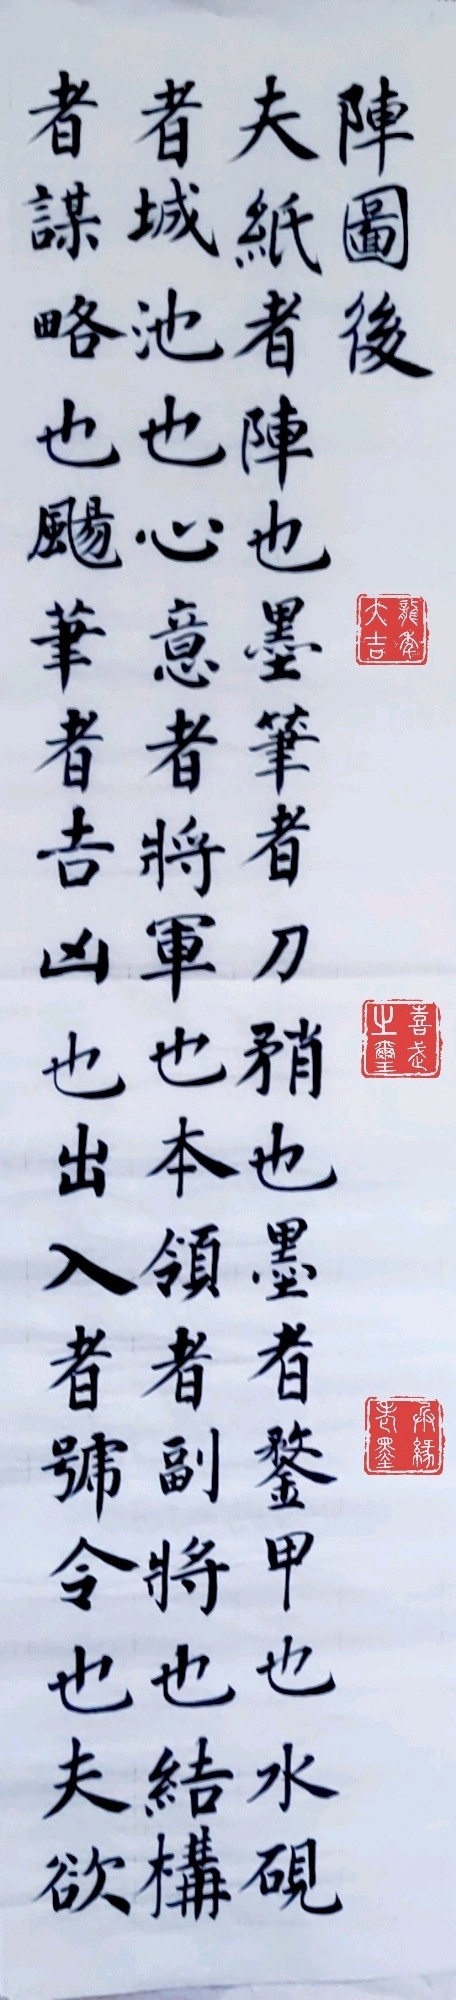 陣圖後
夫紙者陣也墨筆者刀矟也墨者鍪甲也水硯
者城池也心意者將軍也本領者副將也結構
者謀略也颺筆者吉凶也出入者號令也夫欲
龍年大吉